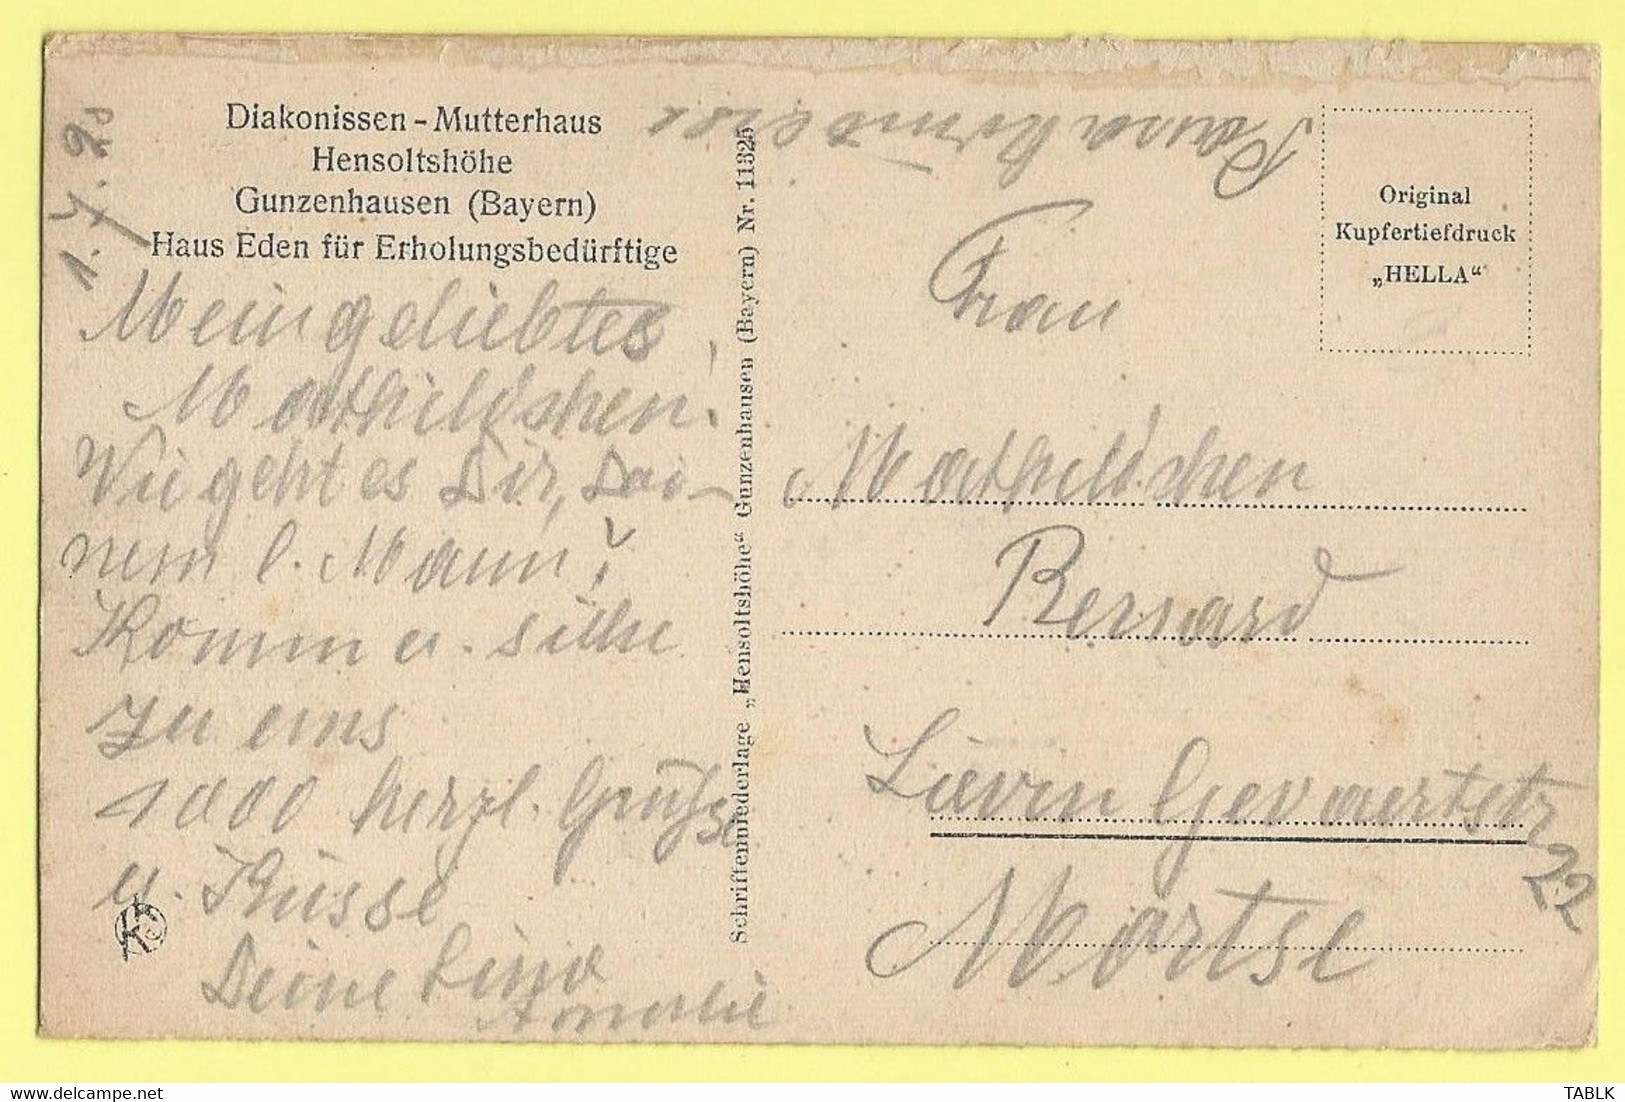 Diakonissen - Mutterhaus
Hensoltshöhe
Gunzenhausen (Bayern)
Haus Eden für Erholungsbedürftige
Mein geliebtes
Mathildchen!
Wie geht es Dir, Dai-
nem l. Mann?
Komm u.
zu uns
1000 herzl. Grüße
u. Küsse
Deine
Schriftenniederlage „Hensoltshöhe“ Gunzenhausen (Bayern) Nr. 11325
Original
Kupfertiefdruck
„HELLA“
Frau
Mathildchen
Bernard
Lievin Gevaertstr
22
Mortsel
TABLK